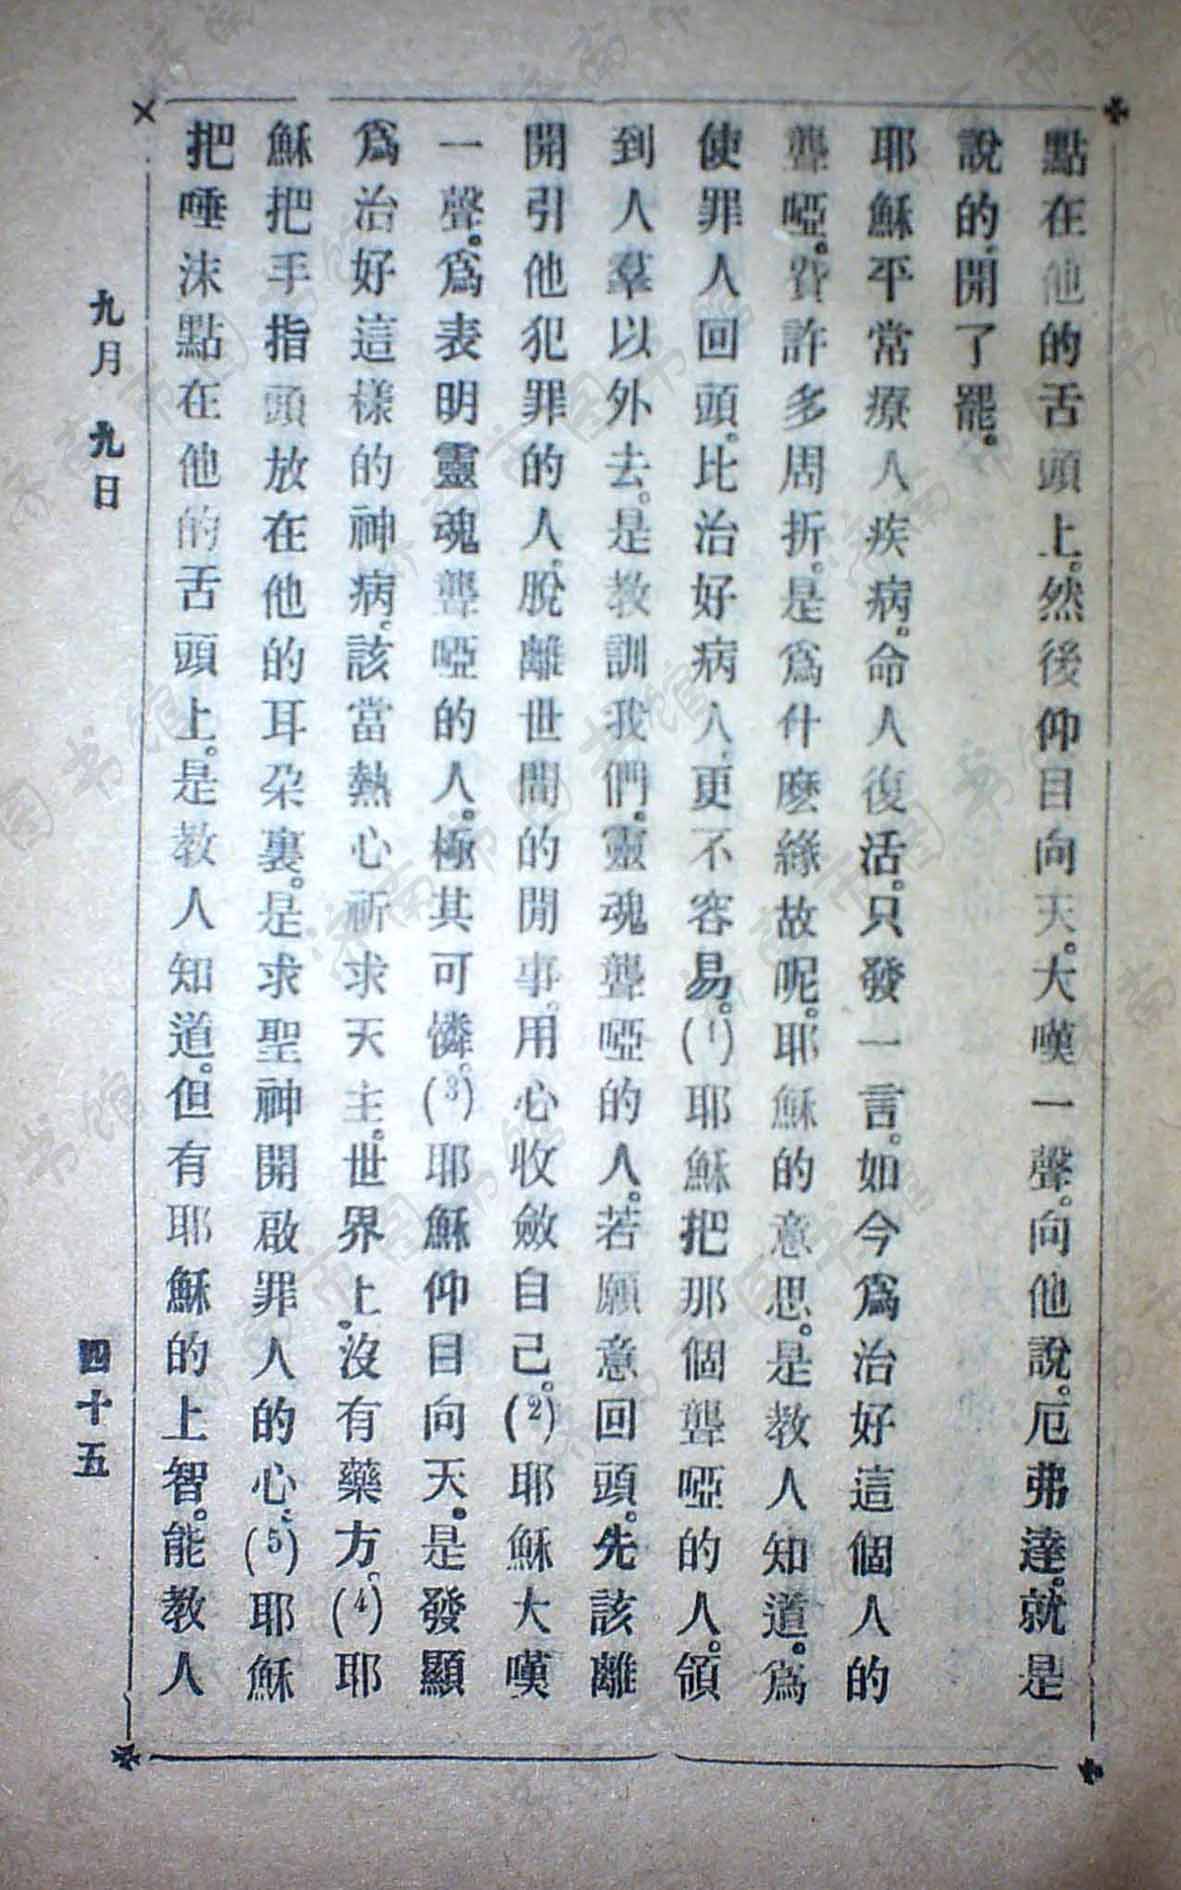 點在他的舌頭上。然後仰目向天。大嘆一聲。向他說。厄弗達。就是
說的。開了罷。
耶穌平常療人疾病。命人復活。只發一言。如今爲治好這個人的
聾啞。費許多周折。是爲什麽緣故呢。耶穌的意思。是教人知道。爲
使罪人回頭。比治好病人。更不容易。(1)耶穌把那個聾啞的人。領
到人羣以外去。是教訓我們。靈魂聾啞的人。若願意回頭。先該離
開引他犯罪的人。脫離世間的閒事。用心收斂自己。(2)耶穌大嘆
一聲。爲表明靈魂聾啞的人。極其可憐。(3)耶穌仰目向天。是發顯
爲治好這樣的神病。該當熱心祈求天主。世界上。沒有藥方。(4)耶
穌把手指頭放在他的耳朶裏。是求聖神開啟罪人的心。(5)耶穌
把唾沫點在他的舌頭上。是教人知道。但有耶穌的上智。能教人
九月 九日
四十五